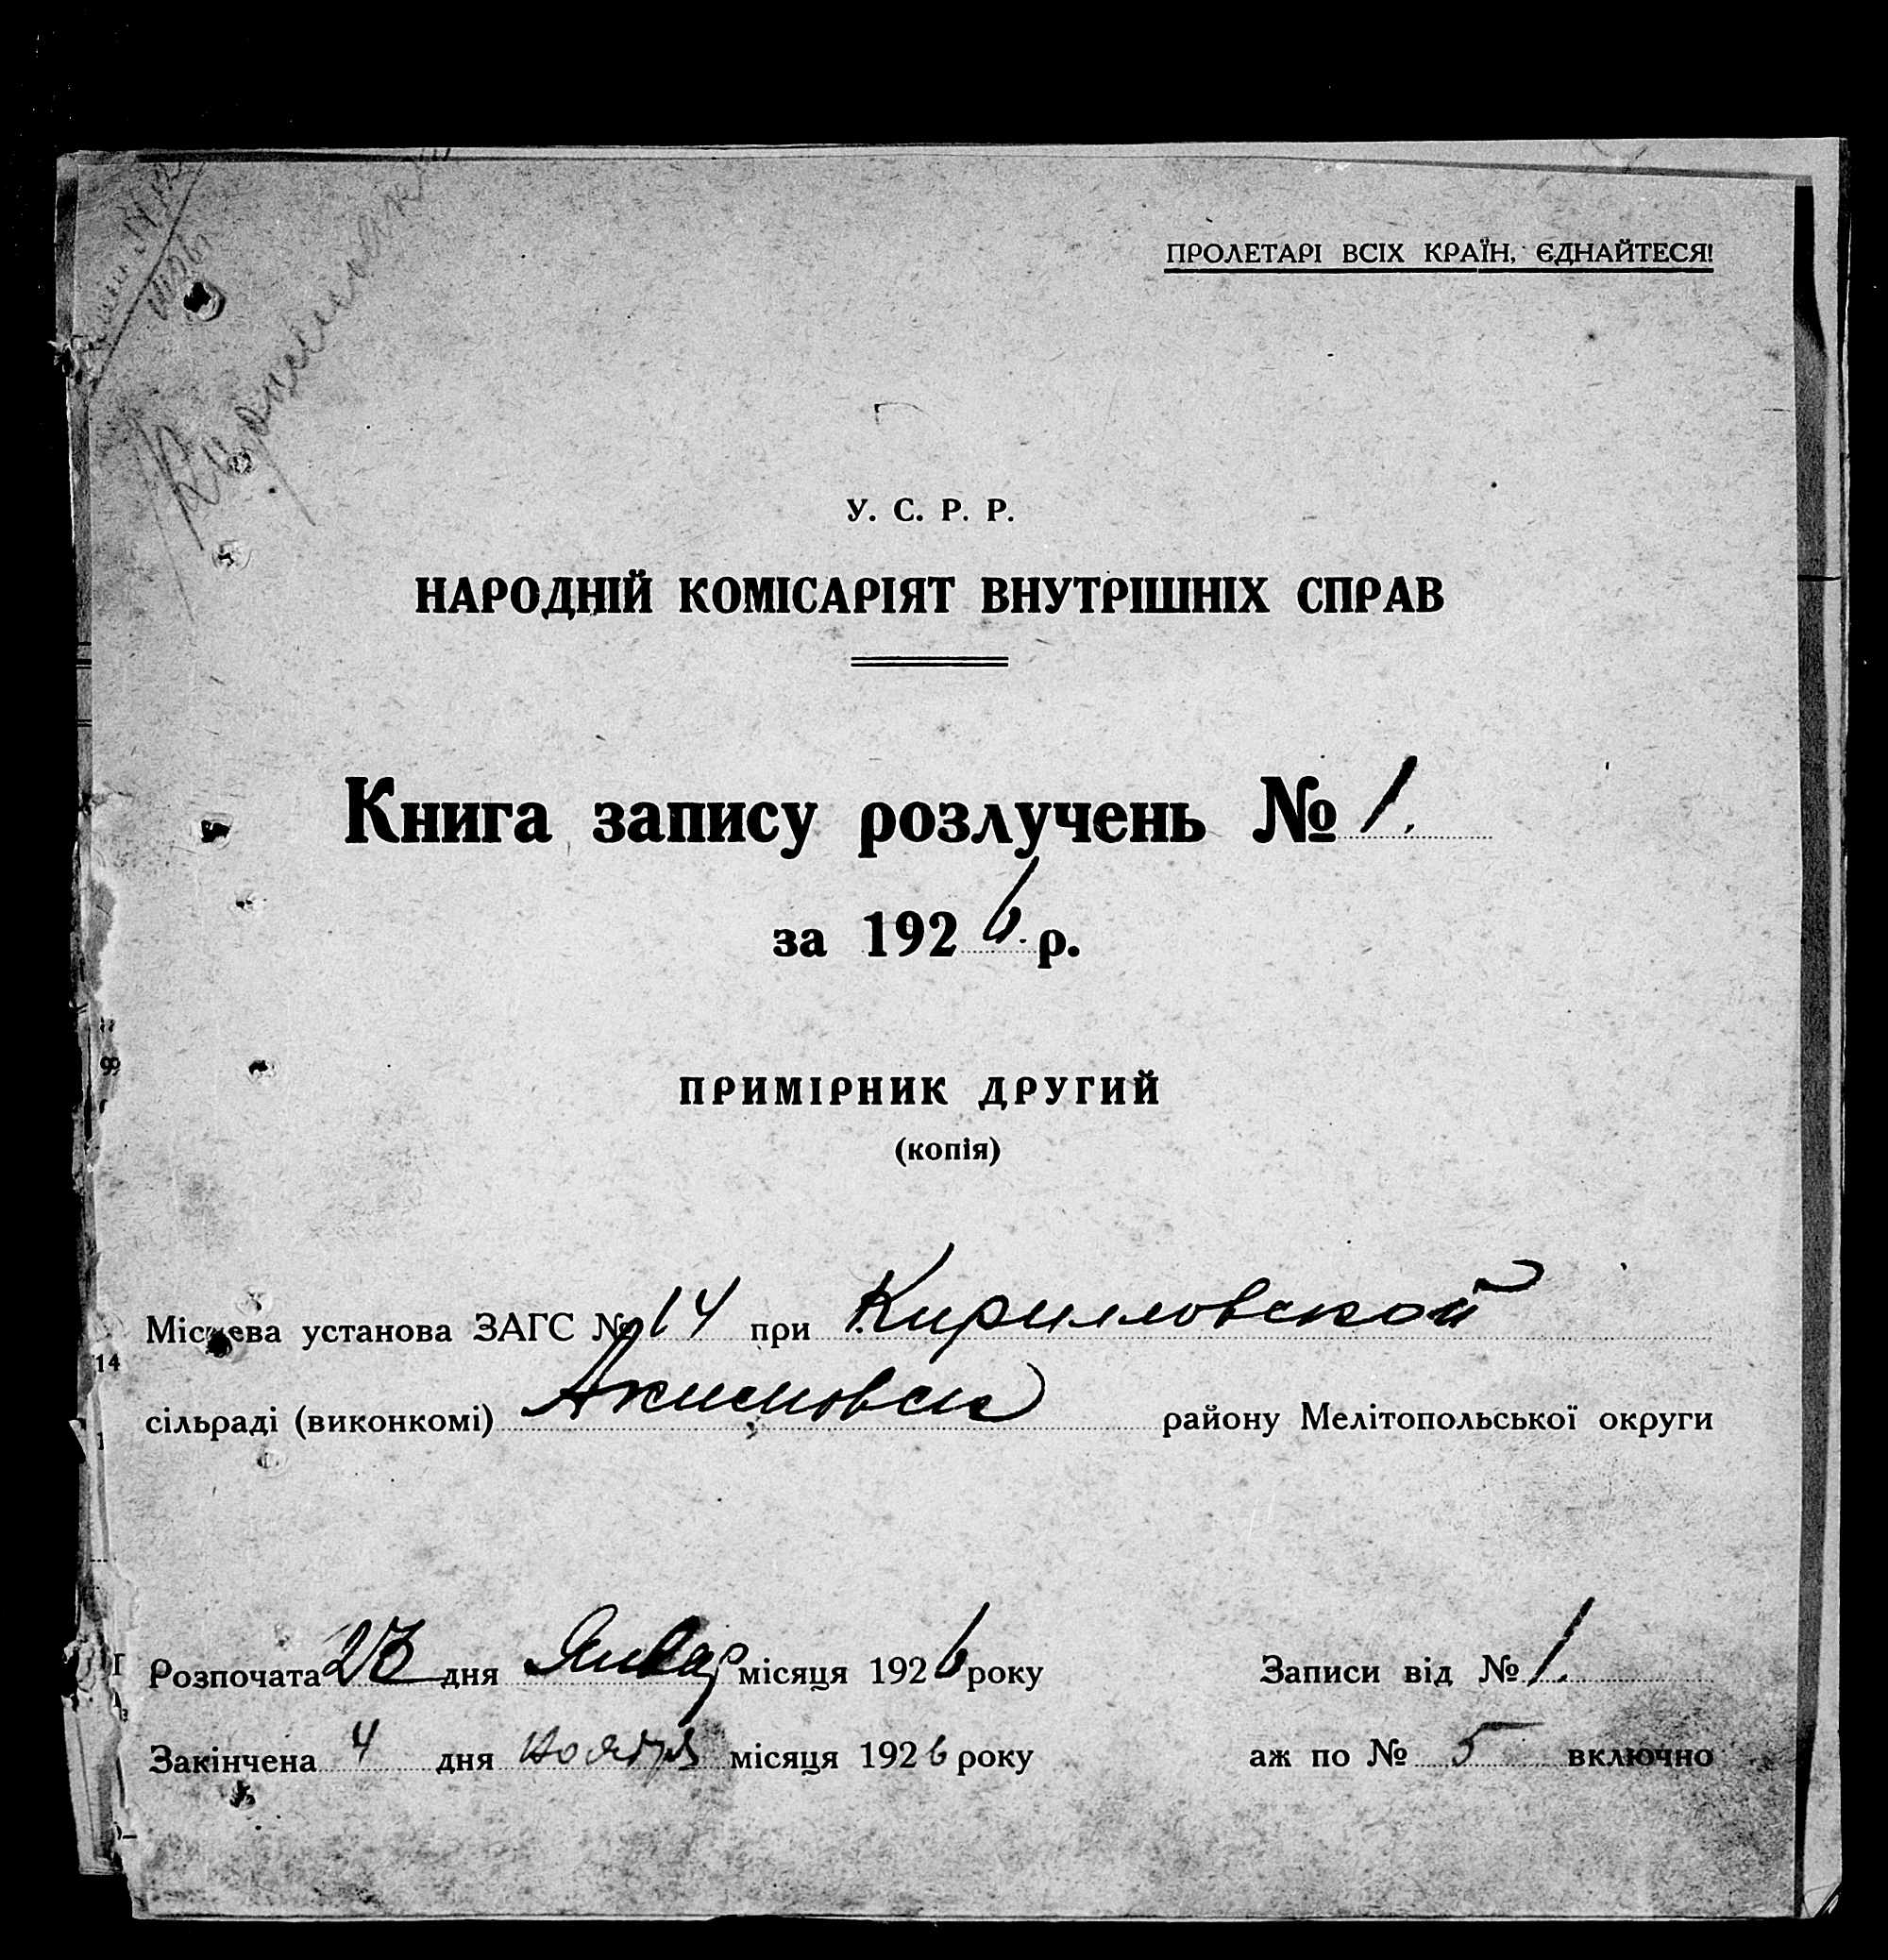 ПРОЛЕТАРІ ВСІХ КРАЇН, ЄДНАЙТЕСЯ!
У. С. Р. Р.
НАРОДНІЙ КОМІСАРІЯТ ВНУТРІШНІХ СПРАВ
Книга запису розлучень № 1.
за 1926 р.
ПРИМІРНИК ДРУГИЙ
(копія)
Місцева установа ЗАГС № 14 при Кирилловской
сільраді (виконкомі) Акимовск району Мелітопольської округи
Розпочата дня Январ місяця 1926 року Записи від № 1.
Закінчена 4 дня ноября місяця 1926 року аж по № 5 включно